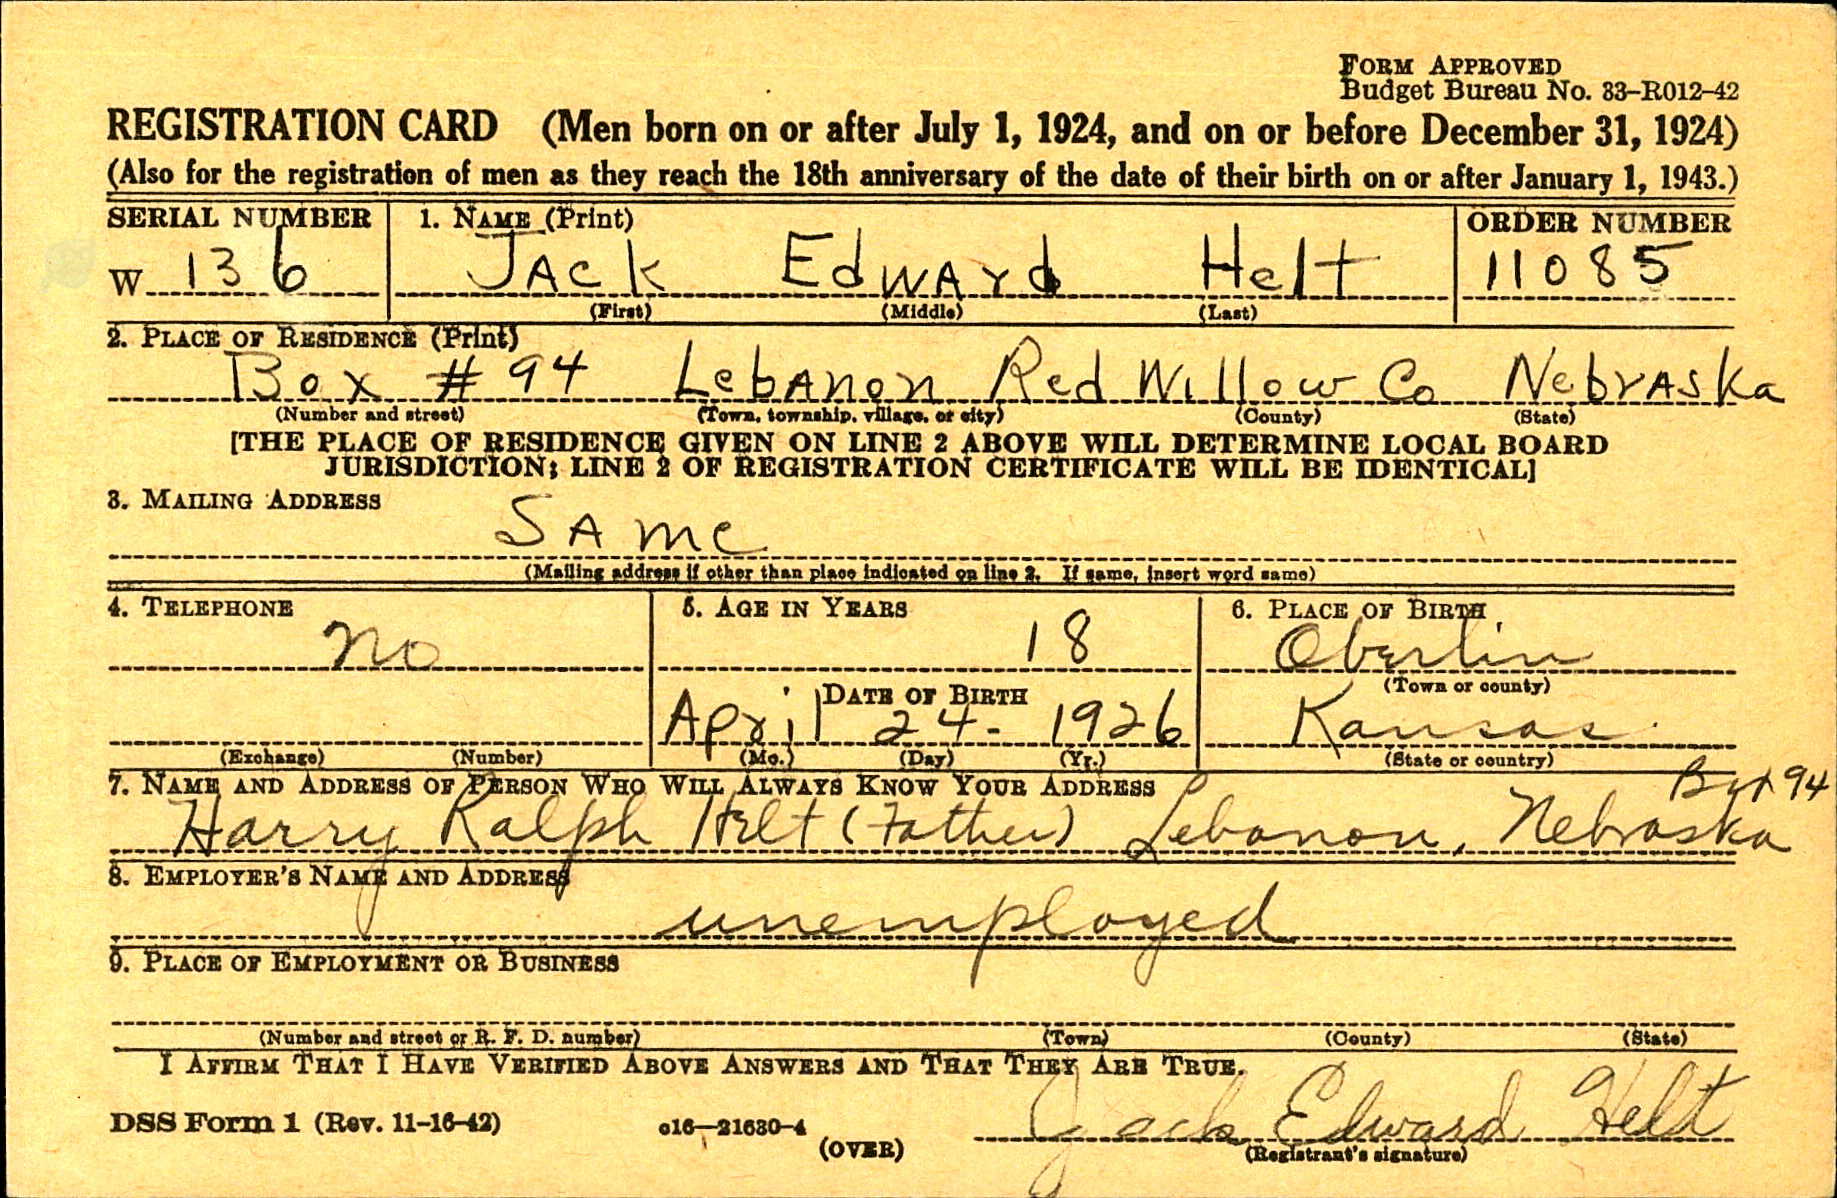 FORM APPROVED
Budget Bureau No. 33–R012–42
REGISTRATION CARD (Men born on or after July 1, 1924, and on or before December 31, 1924)
(Also for the registration of men as they reach the 18th anniversary of the date of their birth on or after January 1, 1943.)
SERIAL NUMBER 1. NAME (Print) ORDER NUMBER
W 136 JAck EdwArd Helt 11085
(First) (Middle) (Last)
2. PLACE OF RESIDENCE (Print)
Box # 94 LebAnon Red Willow Co NebrAska
(Number and street) (Town, township, village, or city) (County) (State)
[THE PLACE OF RESIDENCE GIVEN ON LINE 2 ABOVE WILL DETERMINE LOCAL BOARD
JURISDICTION; LINE 2 OF REGISTRATION CERTIFICATE WILL BE IDENTICAL]
3. MAILING ADDRESS
SAme
(Mailing address if other than place indicated on line 2. If same, insert word same)
4. TELEPHONE 5. AGE IN YEARS 6. PLACE OF BIRTH
no 18 Oberlin
(Town or county)
DATE OF BIRTH
April 24- 1926 Kansas
(Exchange) (Number) (Mo.) (Day) (Yr.) (State or country)
7. NAME AND ADDRESS OF PERSON WHO WILL ALWAYS KNOW YOUR ADDRESS Box 94
Harry Ralph Helt (Father) Lebanon, Nebraska
8. EMPLOYER'S NAME AND ADDRESS
unemployed
9. PLACE OF EMPLOYMENT OR BUSINESS
(Number and street or R. F. D. number) (Town) (County) (State)
I AFFIRM THAT I HAVE VERIFIED ABOVE ANSWERS AND THAT THEY ARE TRUE.
DSS Form 1 (Rev. 11-16-42) c16—21630-4 Jack Edward Helt
(OVER) (Registrant's signature)